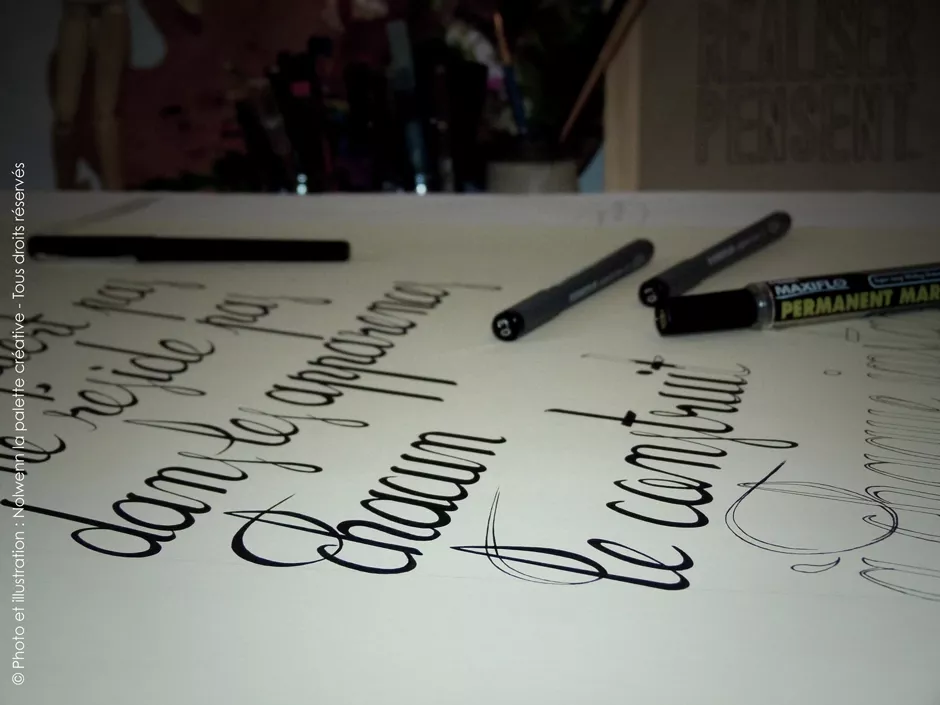 REALISER
PENSENT
pas
reside pas
dans les apparences
Chacun
le construit
03
MAXIFLO
PERMANENT MAR
© Photo et illustration : Nolwenn la palette créative - Tous droits réservés